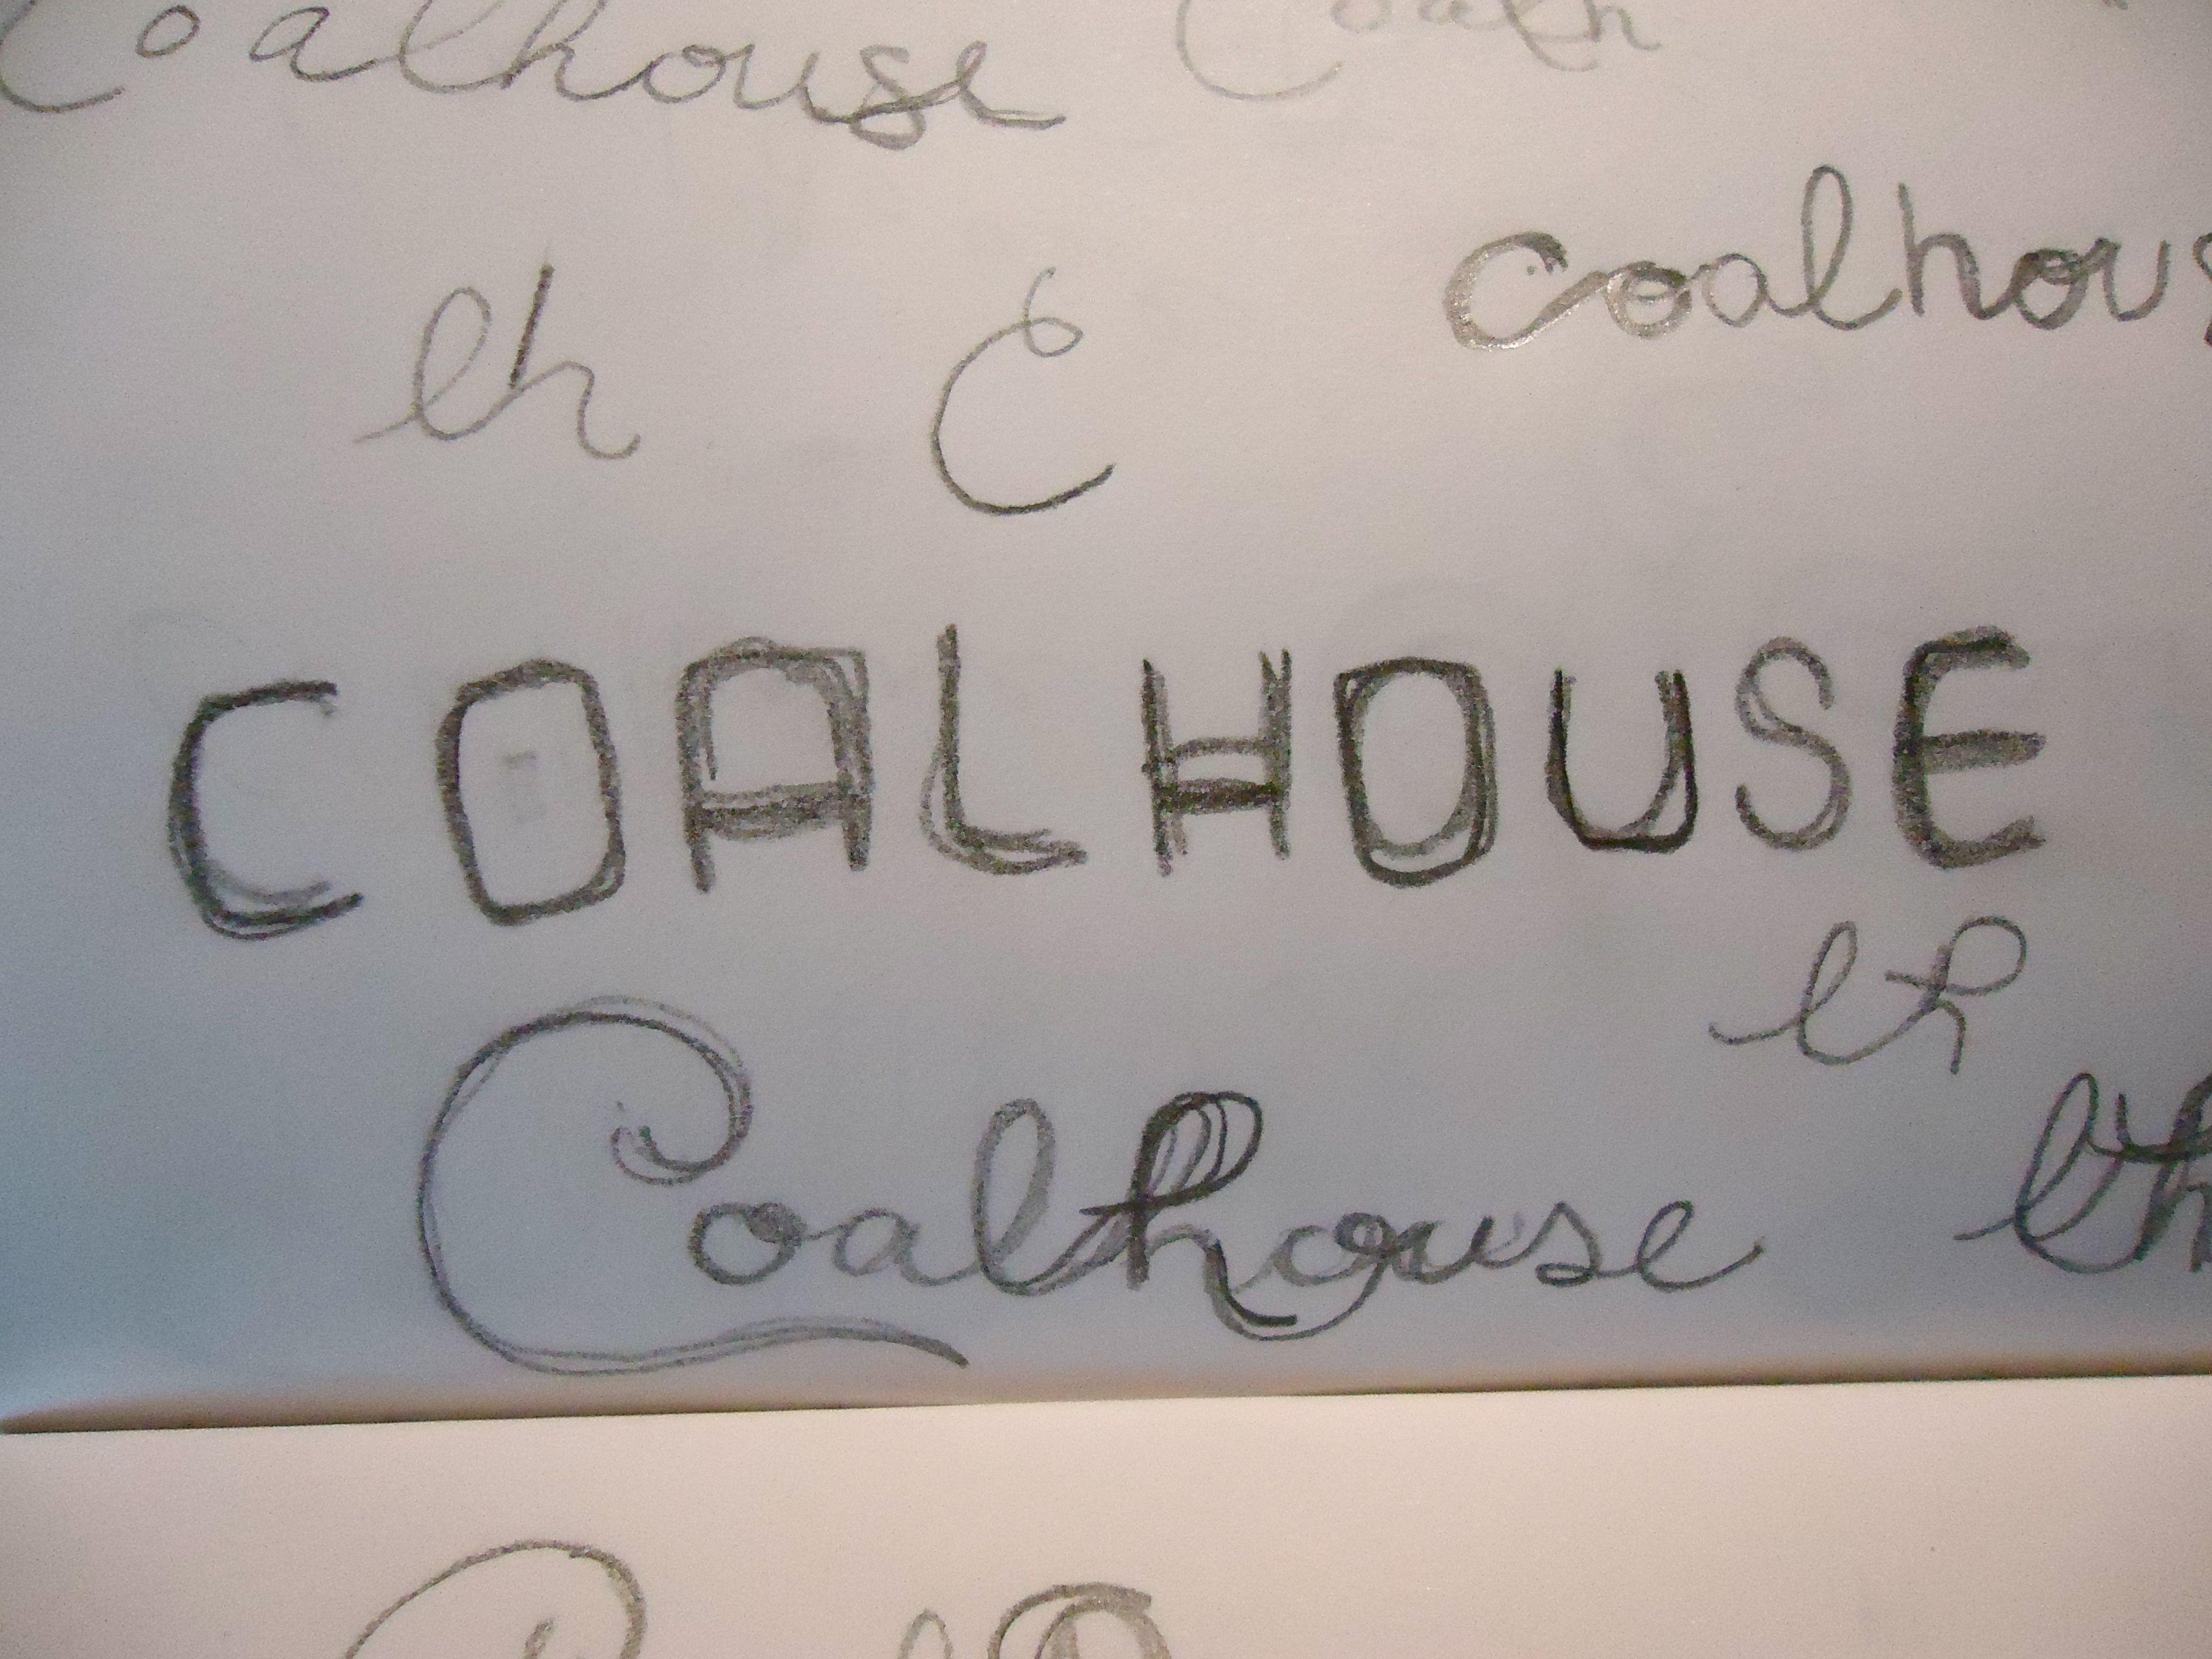 Coalhouse Coalh
coalhous
lh C
COALHOUSE
lh
Coalhouse lh